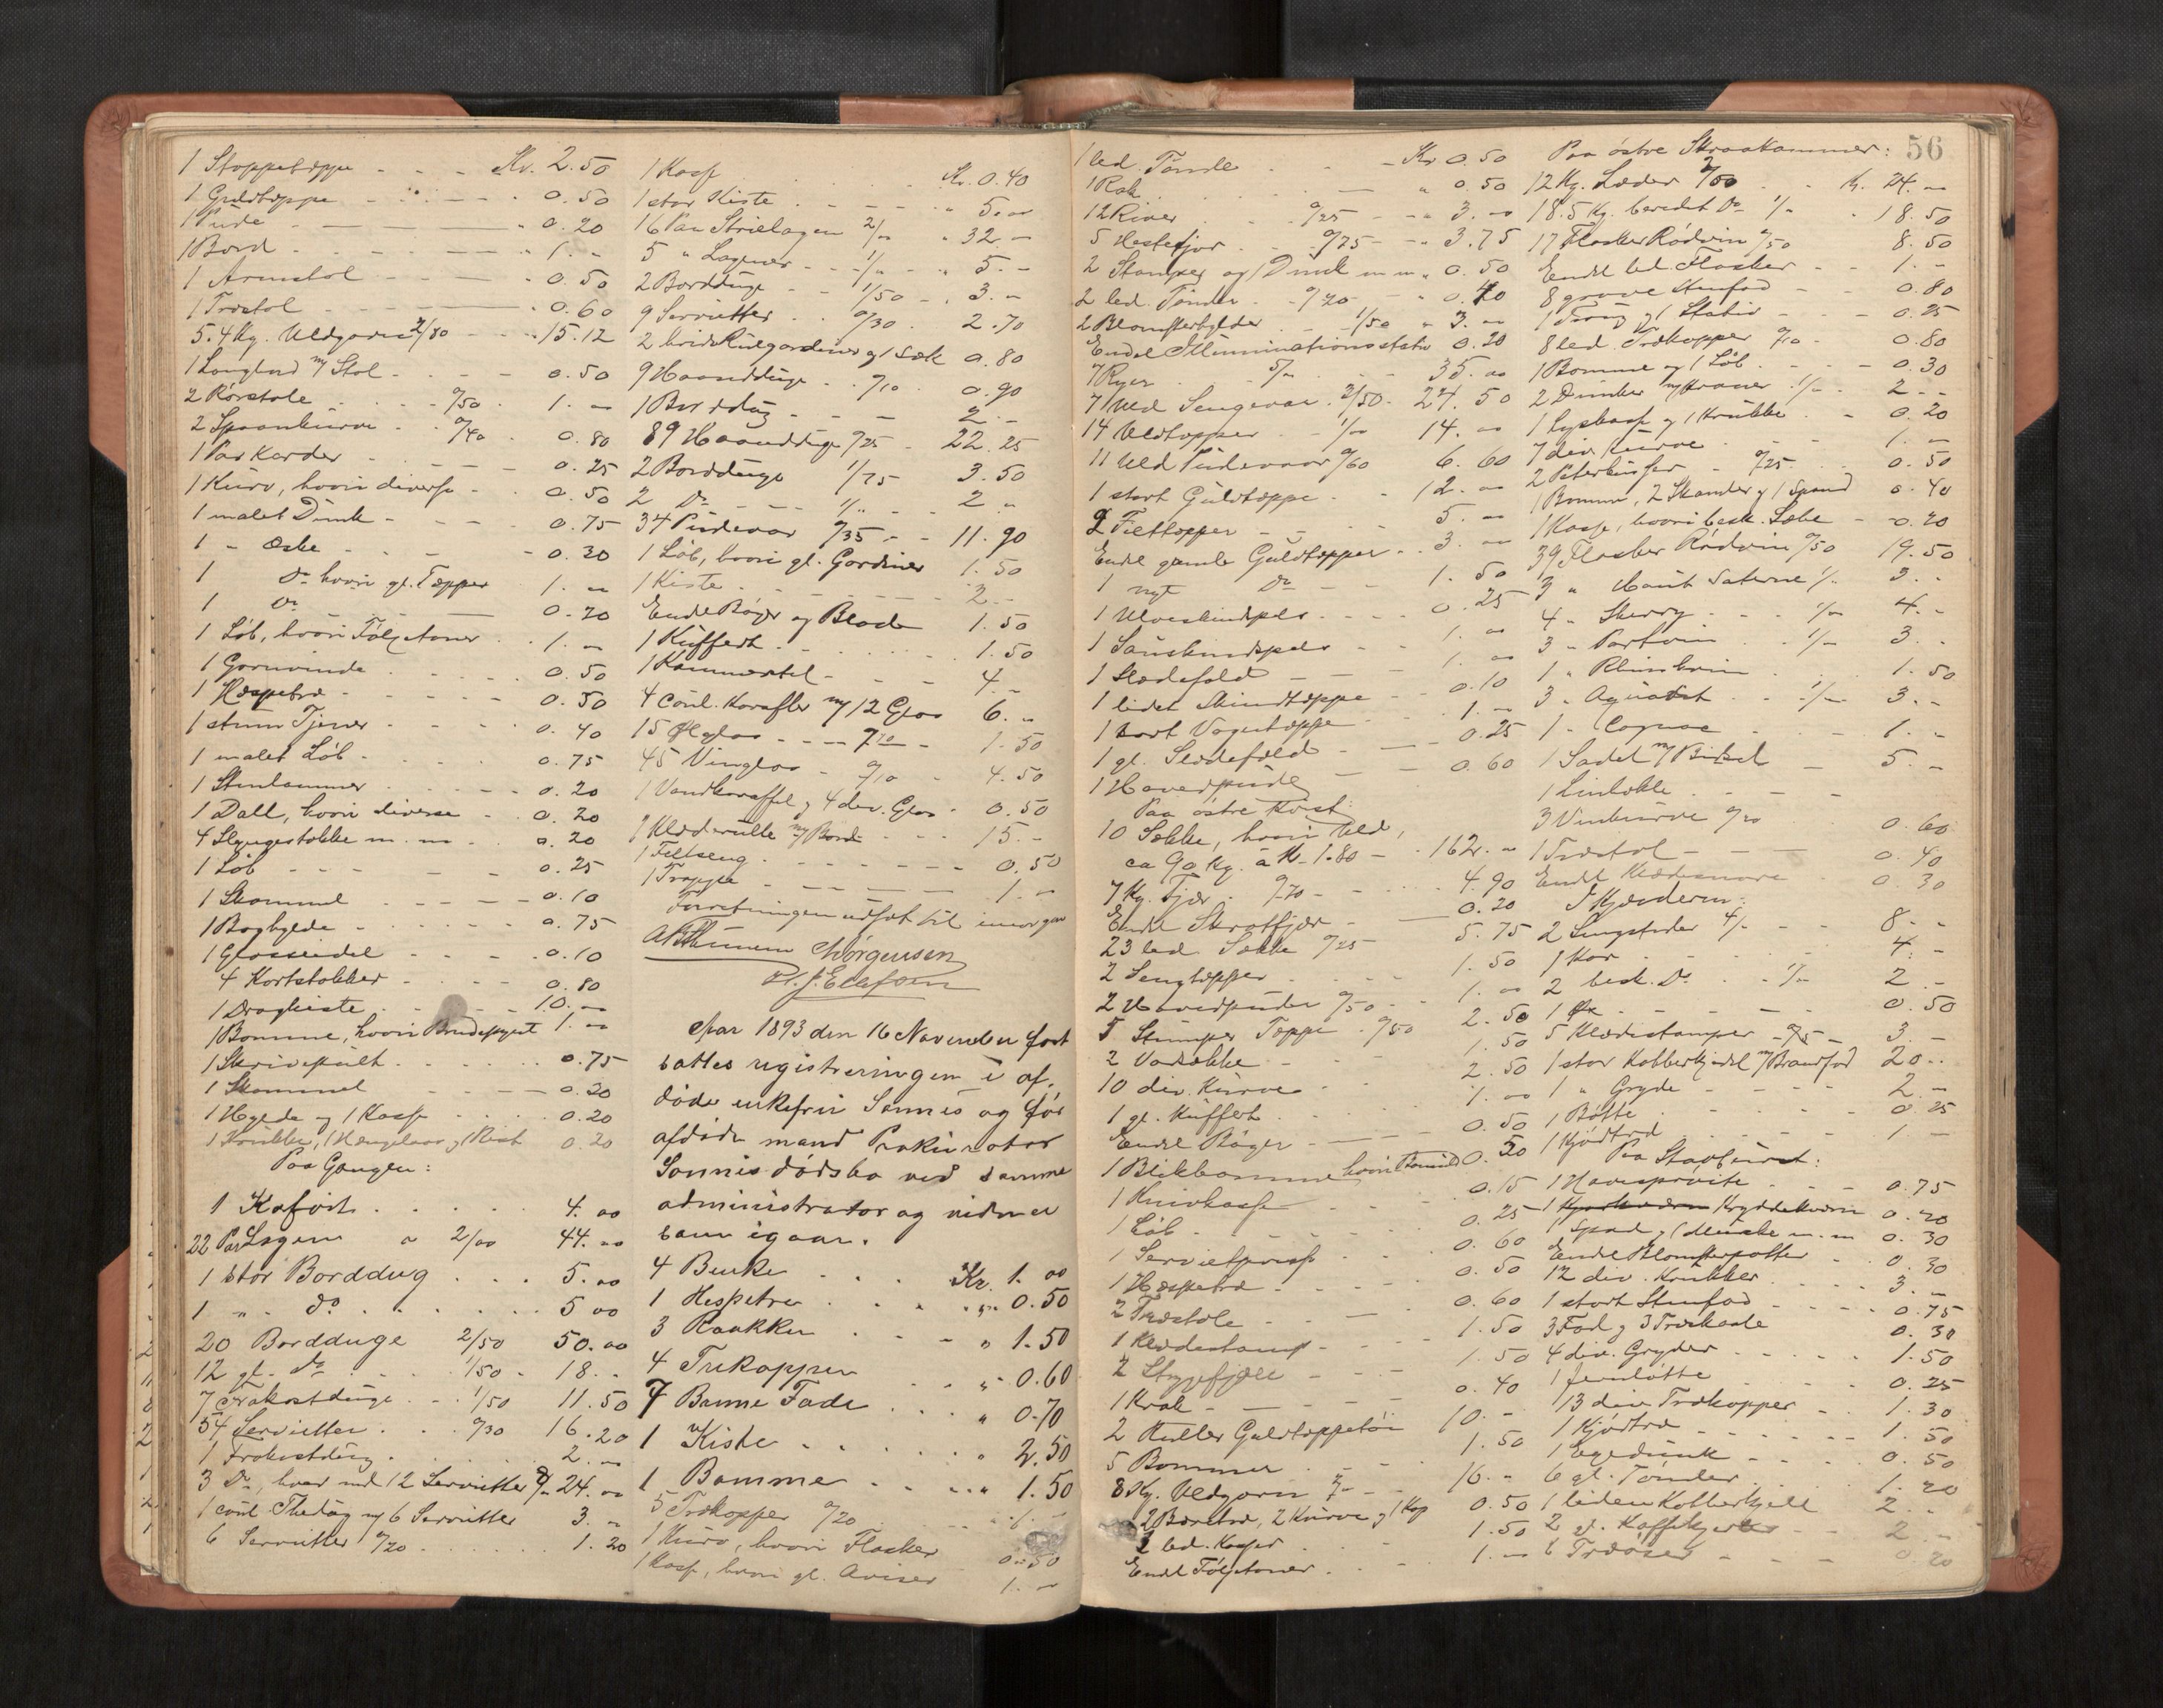 1 Stoppetæppe - - - Kr. 2.50
1 Guldtæppe - - - 0.50
1 Pude - - - 0.20
1 Bord - - - 1. -
1 Armstol - - - 0.50
1 Træstol - - - 0.60
5.4 Kg. Uldgarn 2/80 - - 15.12
1 Langbord m/ Stol - - - 0.50
2 Rørstole - - 0/50 - 1. -
2 Spaankurve - - 0/40 - 0.80
1 Par Karder - - - 0.25
1 Kurv, hvori diverse - - 0.50
1 malet Dunk - - - 0.75
1 - Æske - - - 0.30
1 Do hvori gl. Tæpper 1. -
1 Do 0.20
1 Løb, hvori Følgetoner - - 1. -
1 Garnvinde - - - 0.50
1 Hæspetræ - - - 0.50
1 stum Tjener - - - 0.40
1 malet Løb - - - 0.75
1 Stenhammer - - - 0.20
1 Dall, hvori diverse - - 0.20
4 Slyngestokke m. m. - 0.20
1 Løb - - - 0.25
1 Skammel - - - 0.10
1 Boghylde - - - 0.75
1 Glasseidel - - - 0.10
4 Kortstokker - - - 0.80
1 Dragkiste - - - 10. -
1 Bomme, hvori Brudepynt 1. -
1 Skrivepult - - - 0.75
1 Skammel - - - 0.20
1 Hylde og 1 Kasse - - 0.20
1 Krukke, 1 Hængelaas og 1 Rist 0.20
Paa Gangen:
1 Kofort . . . . . 4. 00
22 Par Lagen a 2/00 44. 00
1 stor Borddug . . . 5. 00
1 " . do . . . . . 5 00
20 Bordduge 2/50 50. 00
12 gl. do . . . 1/50 - 18. -
7 Frokostduge . . . 1/50 11.50
54 Servietter . . . 0/30 16.20
1 Frokostdug . . . 2. -
3 Do, hver med 12 Servietter 8/- 24. 00
1 coul. Thedug m/ 6 Servietter 3. -
6 Servietter 0/20 . . . 1.20
1 Kasse . . . . Kr. 0.40
1 stor Kiste . . - - - " 5. 00
16 Par Strielagen 2/- " 32. -
5 " Lagener - - 1/- - " 5. -
2 Bordduge - - 1/50 - 3. -
9 Servietter . . 0/30 . 2.70
2 hvide Rulgardiner og 1 Sæk 0.80
9 Haandduge . . 0/10 . 0.90
1 Borddug - - - 2. -
89 Haandduge 0/25 - 22.25
2 Bordduge 1/75 3.50
2 Do - - - 1/- 2 "
34 Pudevar 0/35 - - 11.90
1 Løb, hvori gl. Gardiner 1.50
1 Kiste - - - - 2. -
Endel Bøger og Blade 1.50
1 Kuffert . - - - 1.50
1 Kammerstol - - - 4. -
4 coul. Karafler m/ 12 Glas 6. -
15 Ølglas - - - 0/10 - 1.50
45 Vinglas - 0/10 - 4.50
1 Vandkaraffel og 4 div. Glas - 0.50
1 Klæderulle m/ Bord - - - 15. -
1 Feltseng . - - - - 0.50
1 Trappe - - - - 1. -
Forretningen udsat til imorgen
A Thunem C Jørgensen
H. J. Elefsen
Aar 1893 den 16 November fort
sattes registreringen i af,
døde enkefru Sommes og før
afdøde mand Prokurator
Sommes dødsbo ved samme
administrator og vidner
som igaar.
4 Benke . . . . Kr. 1. 00
1 Hespetre . . . . " 0.50
3 Raakker . . - - " 1.50
4 Trekopper . . . " 0.60
7 Brune Fade . . . " 0.70
1 Kiste . . . . . " 2.50
1 Bomme - . . . . " 1.50
5 Trækopper 0/20 . . . 1. -
1 Kurv, hvori Flasker 0.50
1 Kasse, hvori gl. Aviser 1. -
56
1 led. Tønde . . - Kr 0.50
1 Rok . . . - - " 0.50
12 River . . . 0/25 - - " 3. 00
5 Hestefjør . . . 0/75 - - " 3.75
2 Stamper og 1 Dunk m m " 0.50
2 led. Tønder . . 0/20 - - 0.40
2 Blomsterhylder . . 1/50 " 3. -
Endel Illuminationsstste 0.20
7 Ryer . . 5/- . . 35. 00
7 Uld Sengevar . 3/50 . 24. 50
14 Uldtæpper . . 1/00 14. 00
11 Uld Pudevaar 0/60 6. 60
1 stort Guldtæppe . - 12. 00
2 Filttæpper - - - 5. 00
Endel gamle Guldtæpper . . 3. 00
1 nyt Do - - 1. 50
1 Ulveskindspels . . . 0.25
1 Saueskindspels . . . 1. 00
1 Slædefeld - - 1. 00
1 lidet Skindtæppe - - 0.10
1 sort Vogntæppe . . . 1. -
1 gl. Slædefeld - - 0.25
1 Hovedpude - - 0.60
Paa østre Kvist:
10 Sække, hvori Uld,
ca 90 Kg. a Kr 1.80 - . 162. 00
7 Kg. Fjær . 0/70 - - - 4.90
Endel Skrotfjær - - 0.20
23 led. Sække 0/25 5.75
2 Sengtæpper - - - 1.50
2 Hovedpuder 0/50 - - 1. 00
5 Stumper Tæppe . 0/50 2.50
2 Vadsække - - - 1.50
10 div. Kurve . . . 2.50
1 gl. Kuffert . . . 1. 00
Endel Bøger - - - 0.50
1 Blikbomme hvori 0.20
1 Knivkasse - - - 0.15
1 Løb . . . 0.25
1 Servietpresse . . . 0.60
1 Hæspetræ - - - 0.50
2 Træstole . . . 0.60
1 Klædestamp - - - 1.50
2 Stryefjæle - - - 1.50
1 Krak - - - - 0.40
2 Ruller Guldtæppetøi 10. -
5 Bommer . . . . 1.50
8 Kg. Uldgarn 2/- - 16. -
2 Bæretræ, 2 Kurve og 1 Kop 0.50
2 led. Kasser . . . 1.50
Endel Følgetoner . . . 1. -
Paa østre Skraakammer:
12 Kg. Læder 2/00 . . Kr. 24. -
18.5 Kg. beredt Do 1/- . 18.50
17 Flasker Rødvin 0/50 8.50
Endel led. Flasker - - 1. -
8 grove Stenfad - - - 0.80
1 Traug og 1 Stativ - - 0.25
8 led. Trækopper 0/10 - 0.80
1 Bomme og 1 Løb . - - 0.30
2 Dunker m/ Kraner . 1/- - 2. -
1 Lyskasse og 1 Krukke . - 0.20
7 div. Kurve . . - - 1. -
2 Peterkurser - 0/25 . . 0.50
1 Bomme, 2 Skander og 1 Spand 0.40
1 Kasse, hvori besk. Sæbe - 0.20
39 Flasker Rødvin 0/50 19.50
3 " Haut Saterne 1/- 3. -
4 " Sherry . . . 1/00 4. -
3 " Portvin . . 1/- 3. -
1 " Rhinskvin . . . 1.50
3 " Aquavit . . 1/- 3. -
1 " Cognac . . - 1. -
1 Sadel m/ Bidsel - 5. -
1 Linhekle . - - -
3 Vinkurve 0/20 0.60
1 Træstol - - - 0.40
Endel Klædesnore - 0.30
I Kjælderen:
2 Lungstuder 4/- - - 8. -
1 Kar - - - - 4. -
2 besk. Do . . 1/- 2. -
1 Øx - - - - 0.50
5 Klædestamper - 0/75 - 3. -
1 stor Kobberkjedel m/ Brandfod 20. -
1 " Gryde - - - 2. -
1 Bøtte . . . . 0.25
1 Kjødfad . . . 1 -
Paa Stabburet:
1 Havesprøite . . . 0.75
1 Kryddekværn 0.20
1 Spad og 1 Munke m. m 0.30
Endel Blomsterpotter - 0.30
12 div. Krukker . . . 3. -
1 stort Stenfad . . . 0.75
3 Fad og 3 Træskaale 0.30
4 div. Gryder . . . . 1.50
1 Jernbøtte . . . 0.25
13 div. Trækopper . . 1.30
1 Kjødtræ . . . . 1. 50
1 Egedunk - - - 0. 50
6 gl. Tønder . . . 1. 20
1 liden Kobberkjell 2. -
2 gl. Kaffekjeler - 2. -
6 Træøser - - - 0.20